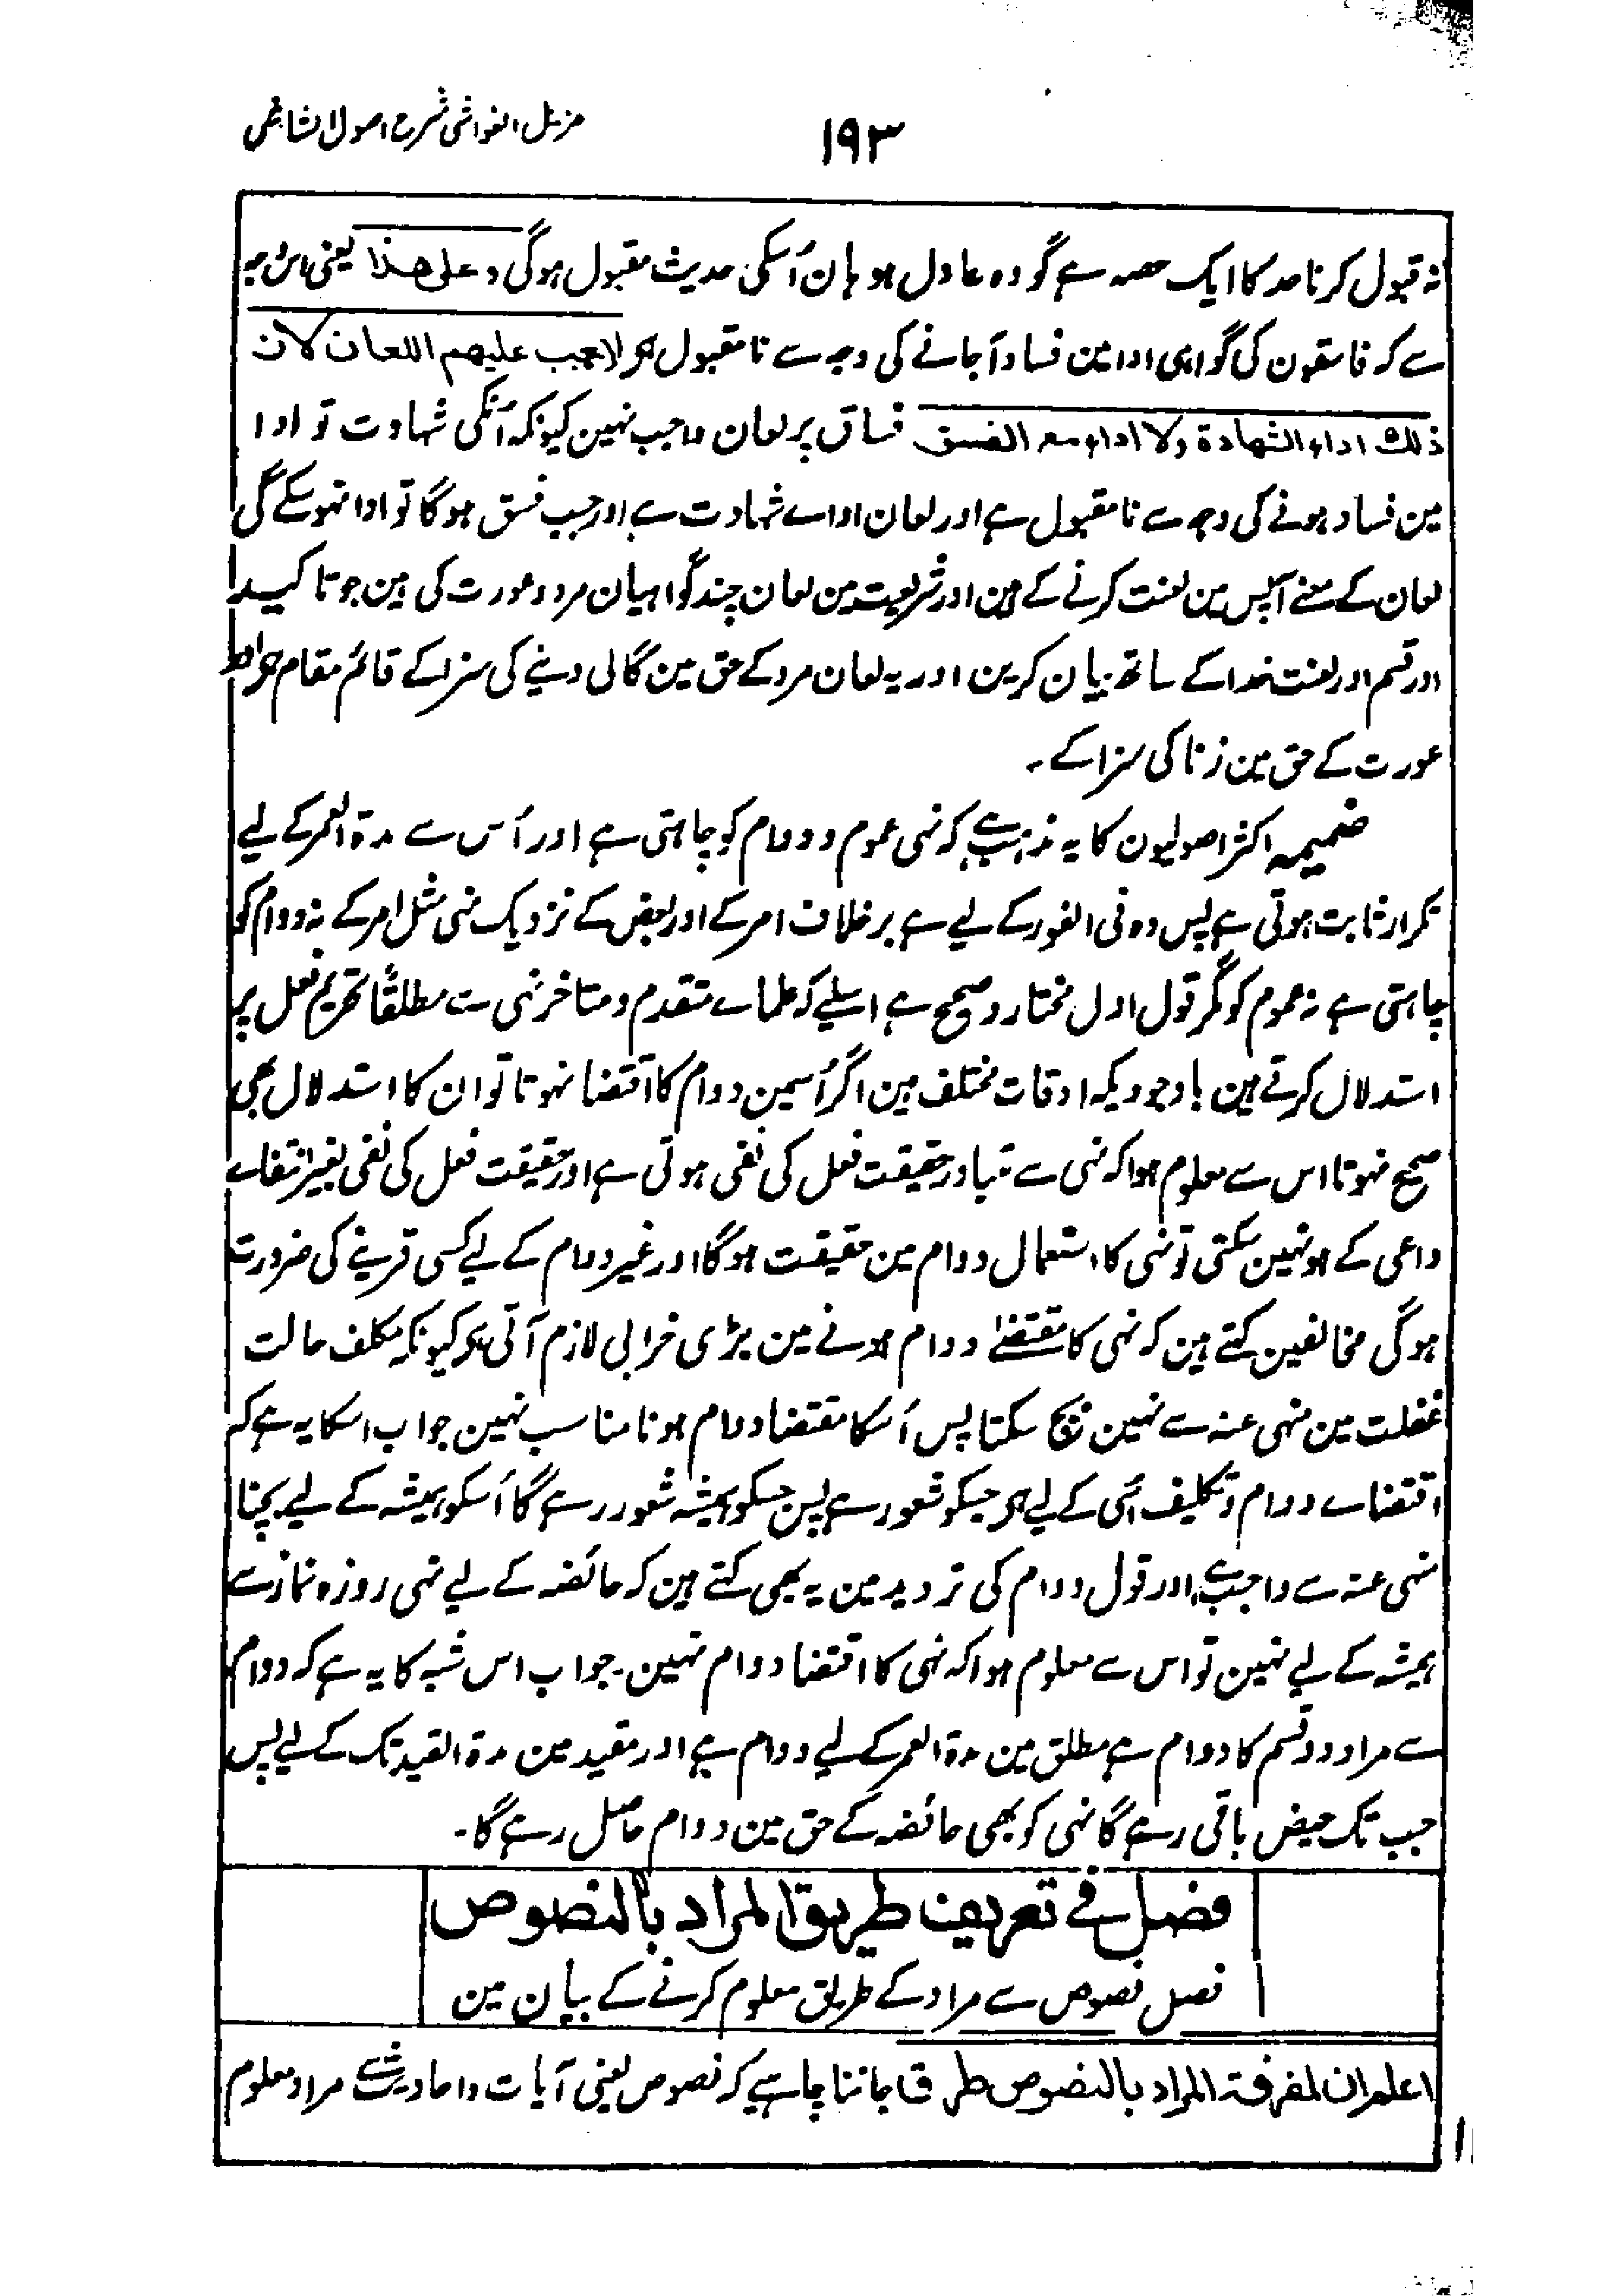 مزیل الغواشی شرح اصول الشاشی
۱۹۳
نہ قبول کرنا حد کا ایک حصہ ہے گو وہ عادل ہو ہان اُسکی حدیث مقبول ہوگی وعلی ھذا یعنی اس وجہ
سے کہ فاسقون کی گواہی ادا مین فساد آجانے کی وجہ سے نا مقبول ہو لا یجب علیہم اللعان لان
ذلك اداء الشھادۃ ولا اداء مع الفسق فساق پر لعان واجب نہین کیونکہ اُنکی شہادت تو ادا
مین فساد ہونے کی وجہ سے نا مقبول ہے اور لعان اداے شہادت ہے اور جب فسق ہوگا تو ادا نہو سکے گی
لعان کے معنے آپس مین لعنت کرنے کے ہین اور شریعت مین لعان چند گواہیان مرد و عورت کی ہین جو تاکیداً
اور قسم اور لعنت خدا کے ساتھ بیان کرین اور یہ لعان مرد کے حق مین گالی دینے کی سزا کے قائم مقام ہوا اور
عورت کے حق مین زنا کی سزا کے۔
ضمیمہ اکثر اصولیون کا یہ مذہب ہے کہ نہی عموم و دوام کو چاہتی ہے اور اُس سے مدۃ العمر کے لیے
تکرار ثابت ہوتی ہے پس وہ فی الفور کے لیے ہے برخلاف امر کے اور بعض کے نزدیک نہی مثل امر کے نہ دوام کو
چاہتی ہے نہ عموم کو مگر قول اول مختار و صحیح ہے اسلیے کہ علماے متقدم و متاخر نہی سے مطلقاً تحریم فعل پر
استدلال کرتے ہین باوجودیکہ اوقات مختلف ہین اگر اُسمین دوام کا اقتضا نہوتا تو ان کا استدلال بھی
صحیح نہوتا اس سے معلوم ہوا کہ نہی سے متبادر حقیقت فعل کی نفی ہوتی ہے اور حقیقت فعل کی نفی بغیر انتفاے
داعی کے ہو نہین سکتی تو نہی کا استعمال دوام مین حقیقت ہوگا اور غیر دوام کے لیے کسی قرینے کی ضرورت
ہوگی مخالفین کہتے ہین کہ نہی کا مقتضیٰ دوام ہونے مین بڑی خرابی لازم آتی ہو کیونکہ مکلف حالت
غفلت مین منہی عنہ سے نہین بچ سکتا پس اُسکا مقتضا دوام ہونا مناسب نہین جواب اسکا یہ ہے کہ
اقتضاے دوام و تکلیف اُسی کے لیے ہو جسکو شعور ہے پس جسکو ہمیشہ شعور رہے گا اُسکو ہمیشہ کے لیے بچنا
منہی عنہ سے واجب ہے اور قول دوام کی تردید مین یہ بھی کہتے ہین کہ حائضہ کے لیے نہی روزہ و نماز سے
ہمیشہ کے لیے نہین تو اس سے معلوم ہوا کہ نہی کا اقتضا دوام نہین۔ جواب اس شبہ کا یہ ہے کہ دوام
سے مراد دو قسم کا دوام ہے مطلق مین مدۃ العمر کے لیے دوام ہے اور مقید مین مدۃ القید تک کے لیے پس
جب تک حیض باقی رہے گا نہی کو بھی حائضہ کے حق مین دوام حاصل رہے گا۔
فصل فی تعریف طریق المراد بالنصوص
فصل نصوص سے مراد کے طریق معلوم کرنے کے بیان مین
اعلم ان لمعرفۃ المراد بالنصوص طرقا جاننا چاہیے کہ نصوص یعنی آیات و احادیث سے مراد معلوم